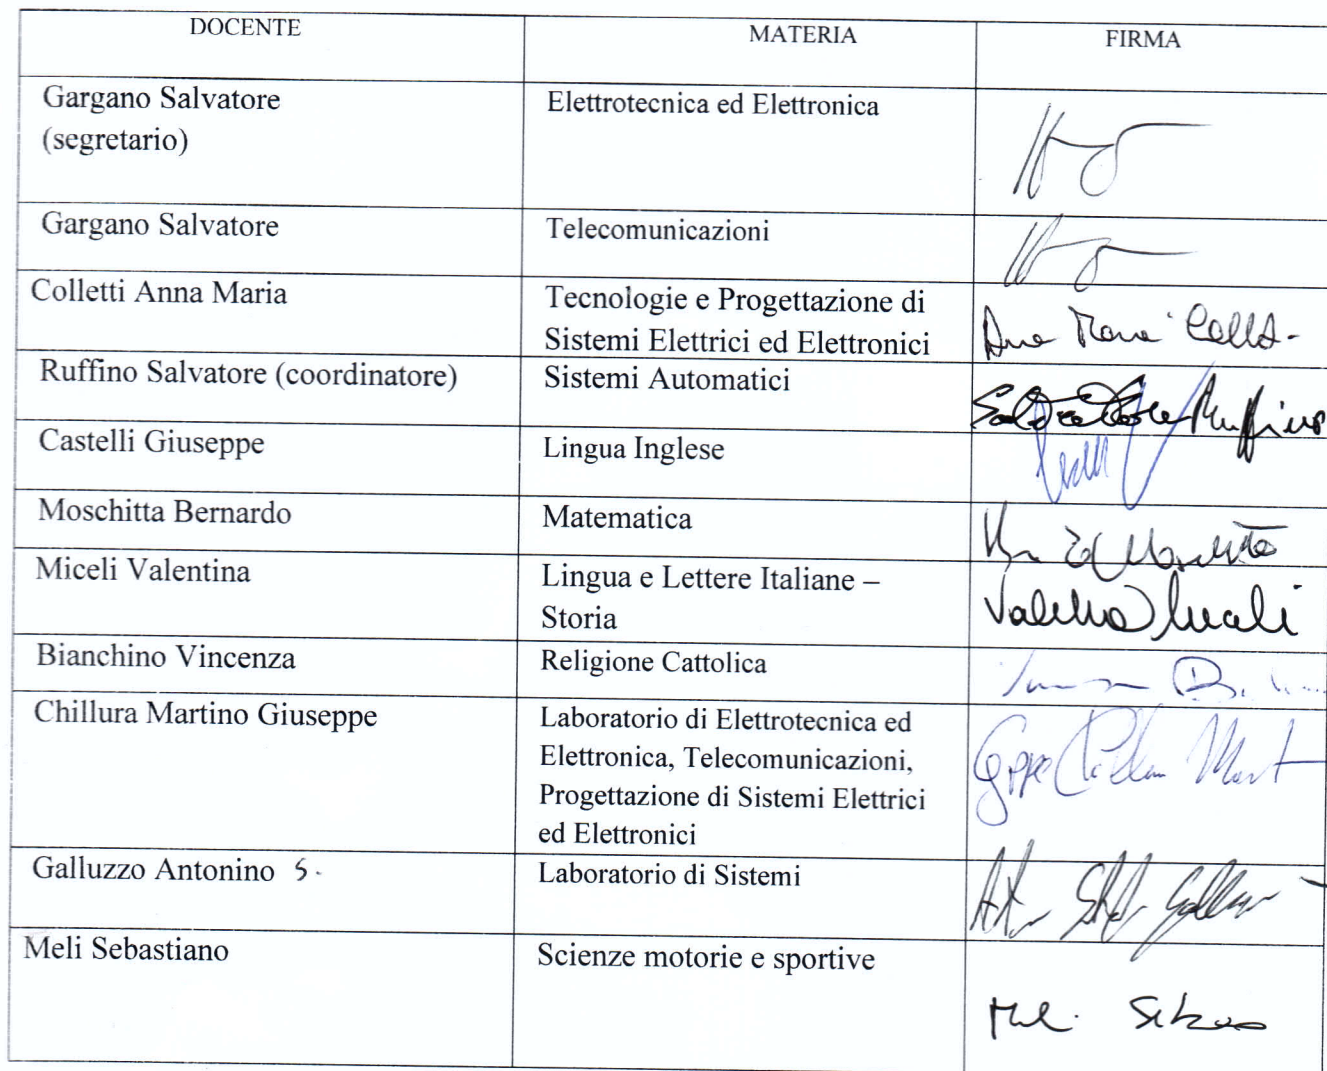 DOCENTE MATERIA FIRMA
Gargano Salvatore Elettrotecnica ed Elettronica
(segretario)
Gargano Salvatore Telecomunicazioni
Colletti Anna Maria Tecnologie e Progettazione di
Sistemi Elettrici ed Elettronici
Ruffino Salvatore (coordinatore) Sistemi Automatici Salvatore Ruffino
Castelli Giuseppe Lingua Inglese
Moschitta Bernardo Matematica
Miceli Valentina Lingua e Lettere Italiane –
Storia
Bianchino Vincenza Religione Cattolica
Chillura Martino Giuseppe Laboratorio di Elettrotecnica ed
Elettronica, Telecomunicazioni,
Progettazione di Sistemi Elettrici
ed Elettronici
Galluzzo Antonino S. Laboratorio di Sistemi
Meli Sebastiano Scienze motorie e sportive